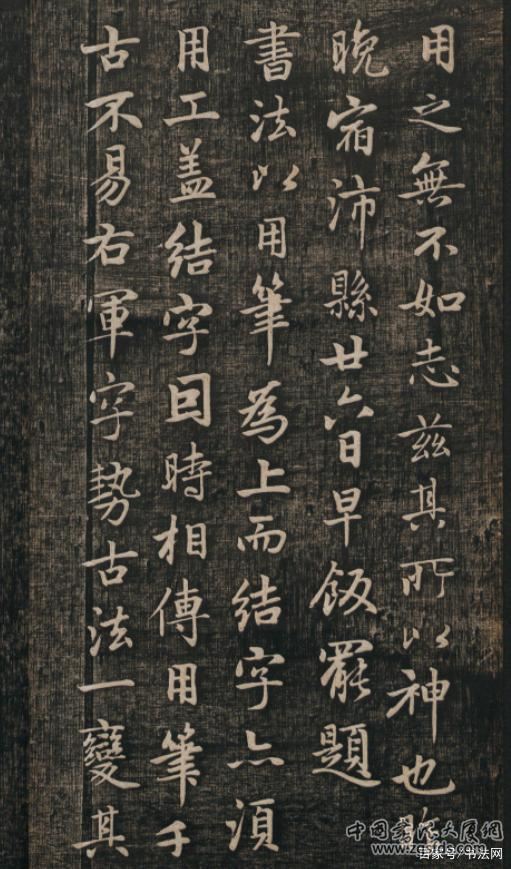 用之無不如志兹其所以神也昨
晚宿沛縣廿六日早飯罷題
書法以用筆為上而結字亦須
用工盖結字囙時相傳用筆千
古不易右軍字勢古法一變其
中國書法大展網
百家号/书法网